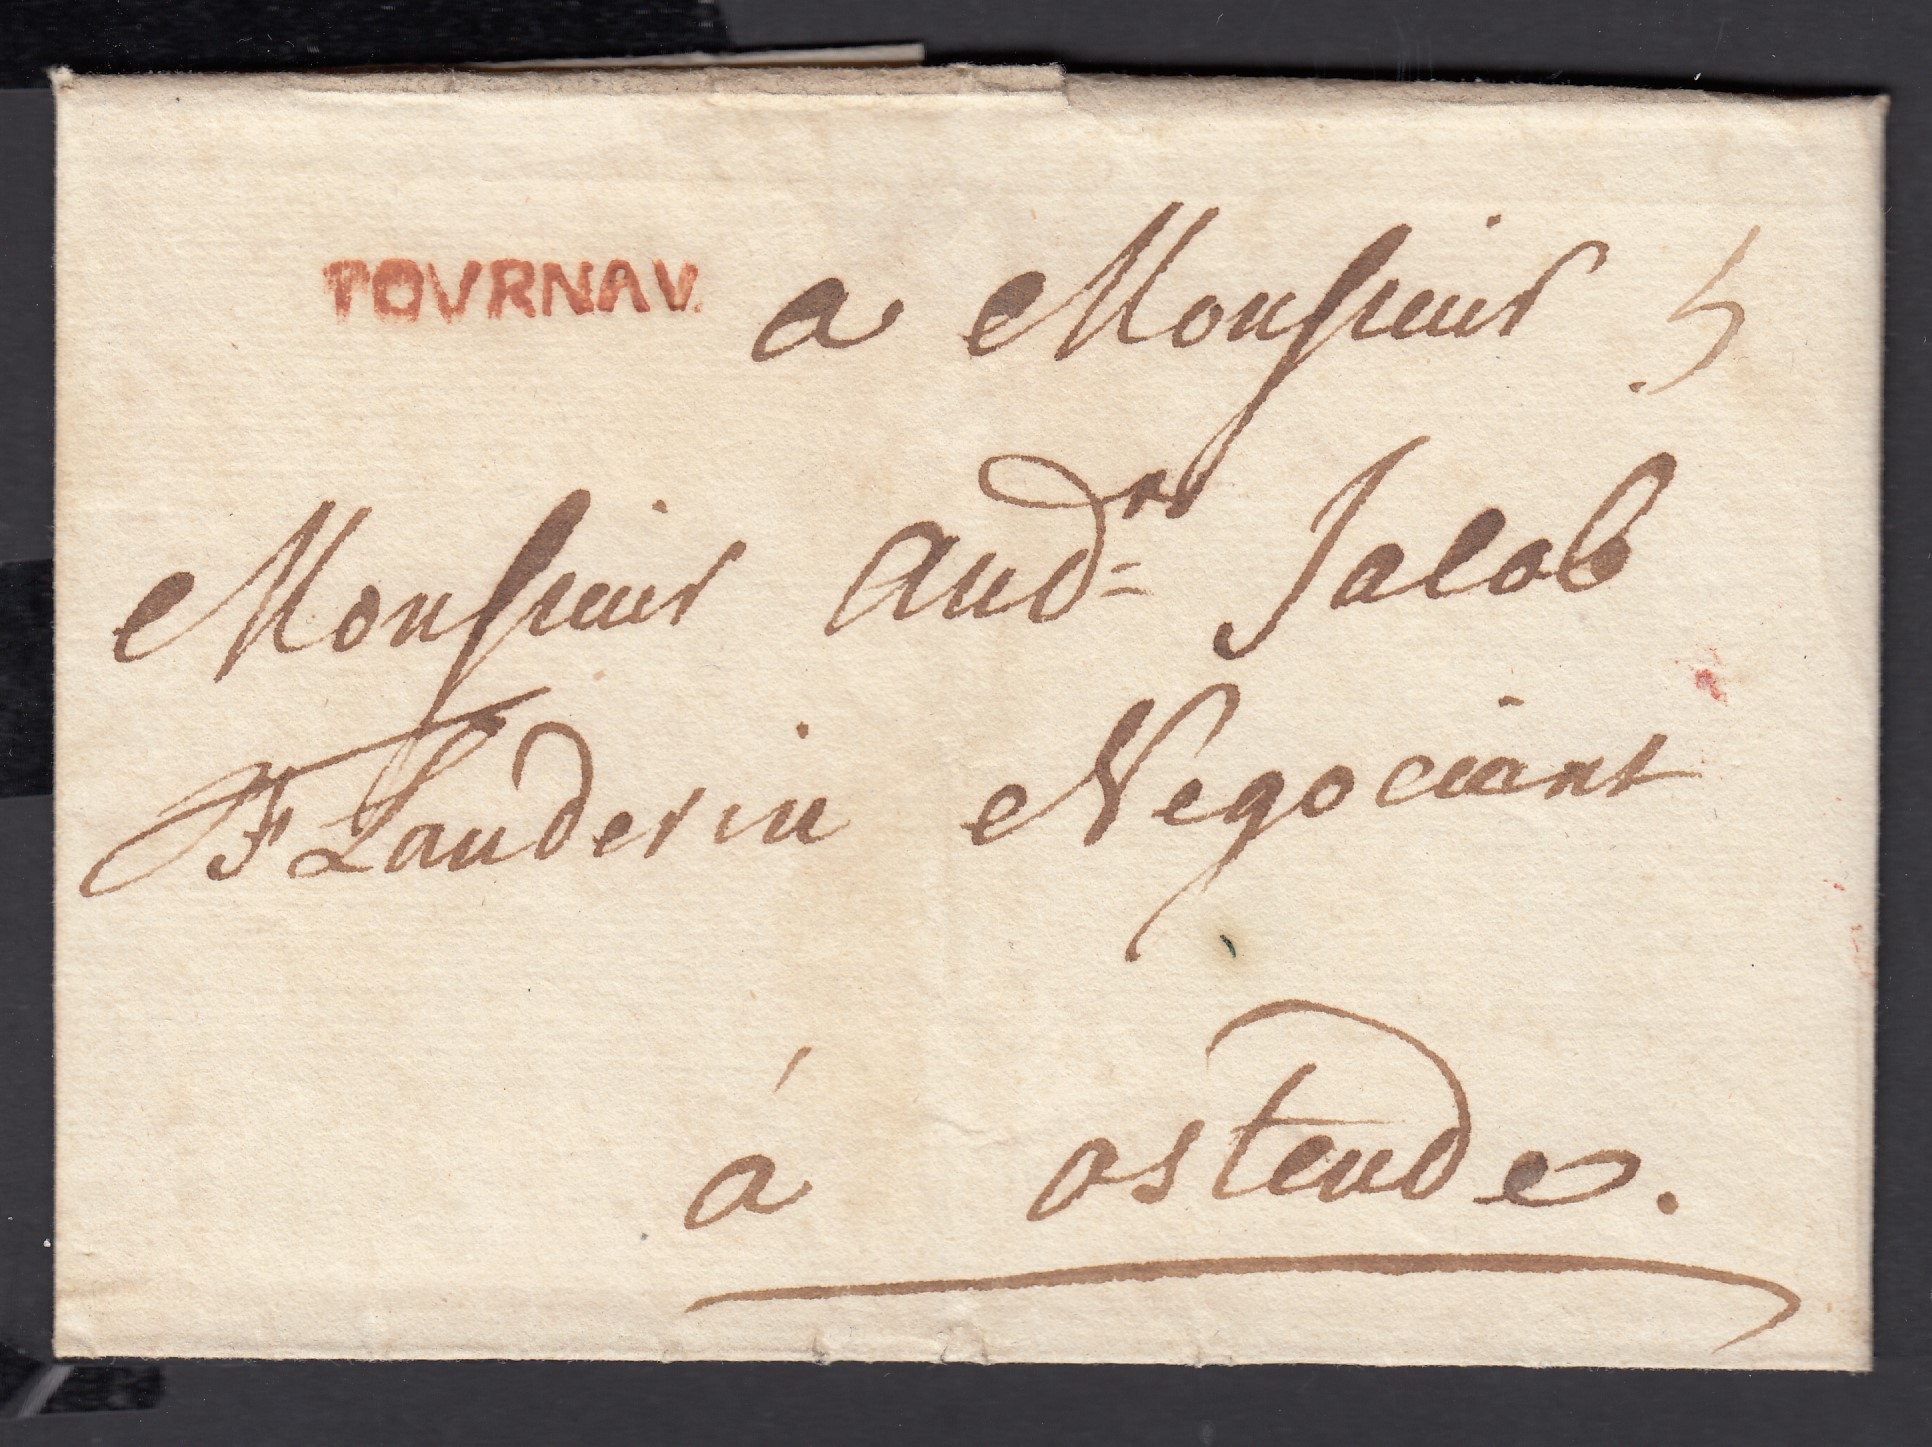 TOVRNAV a Monsieur 5
Monsieur Andrs Jacob
Flanderin Negociant
á ostende.